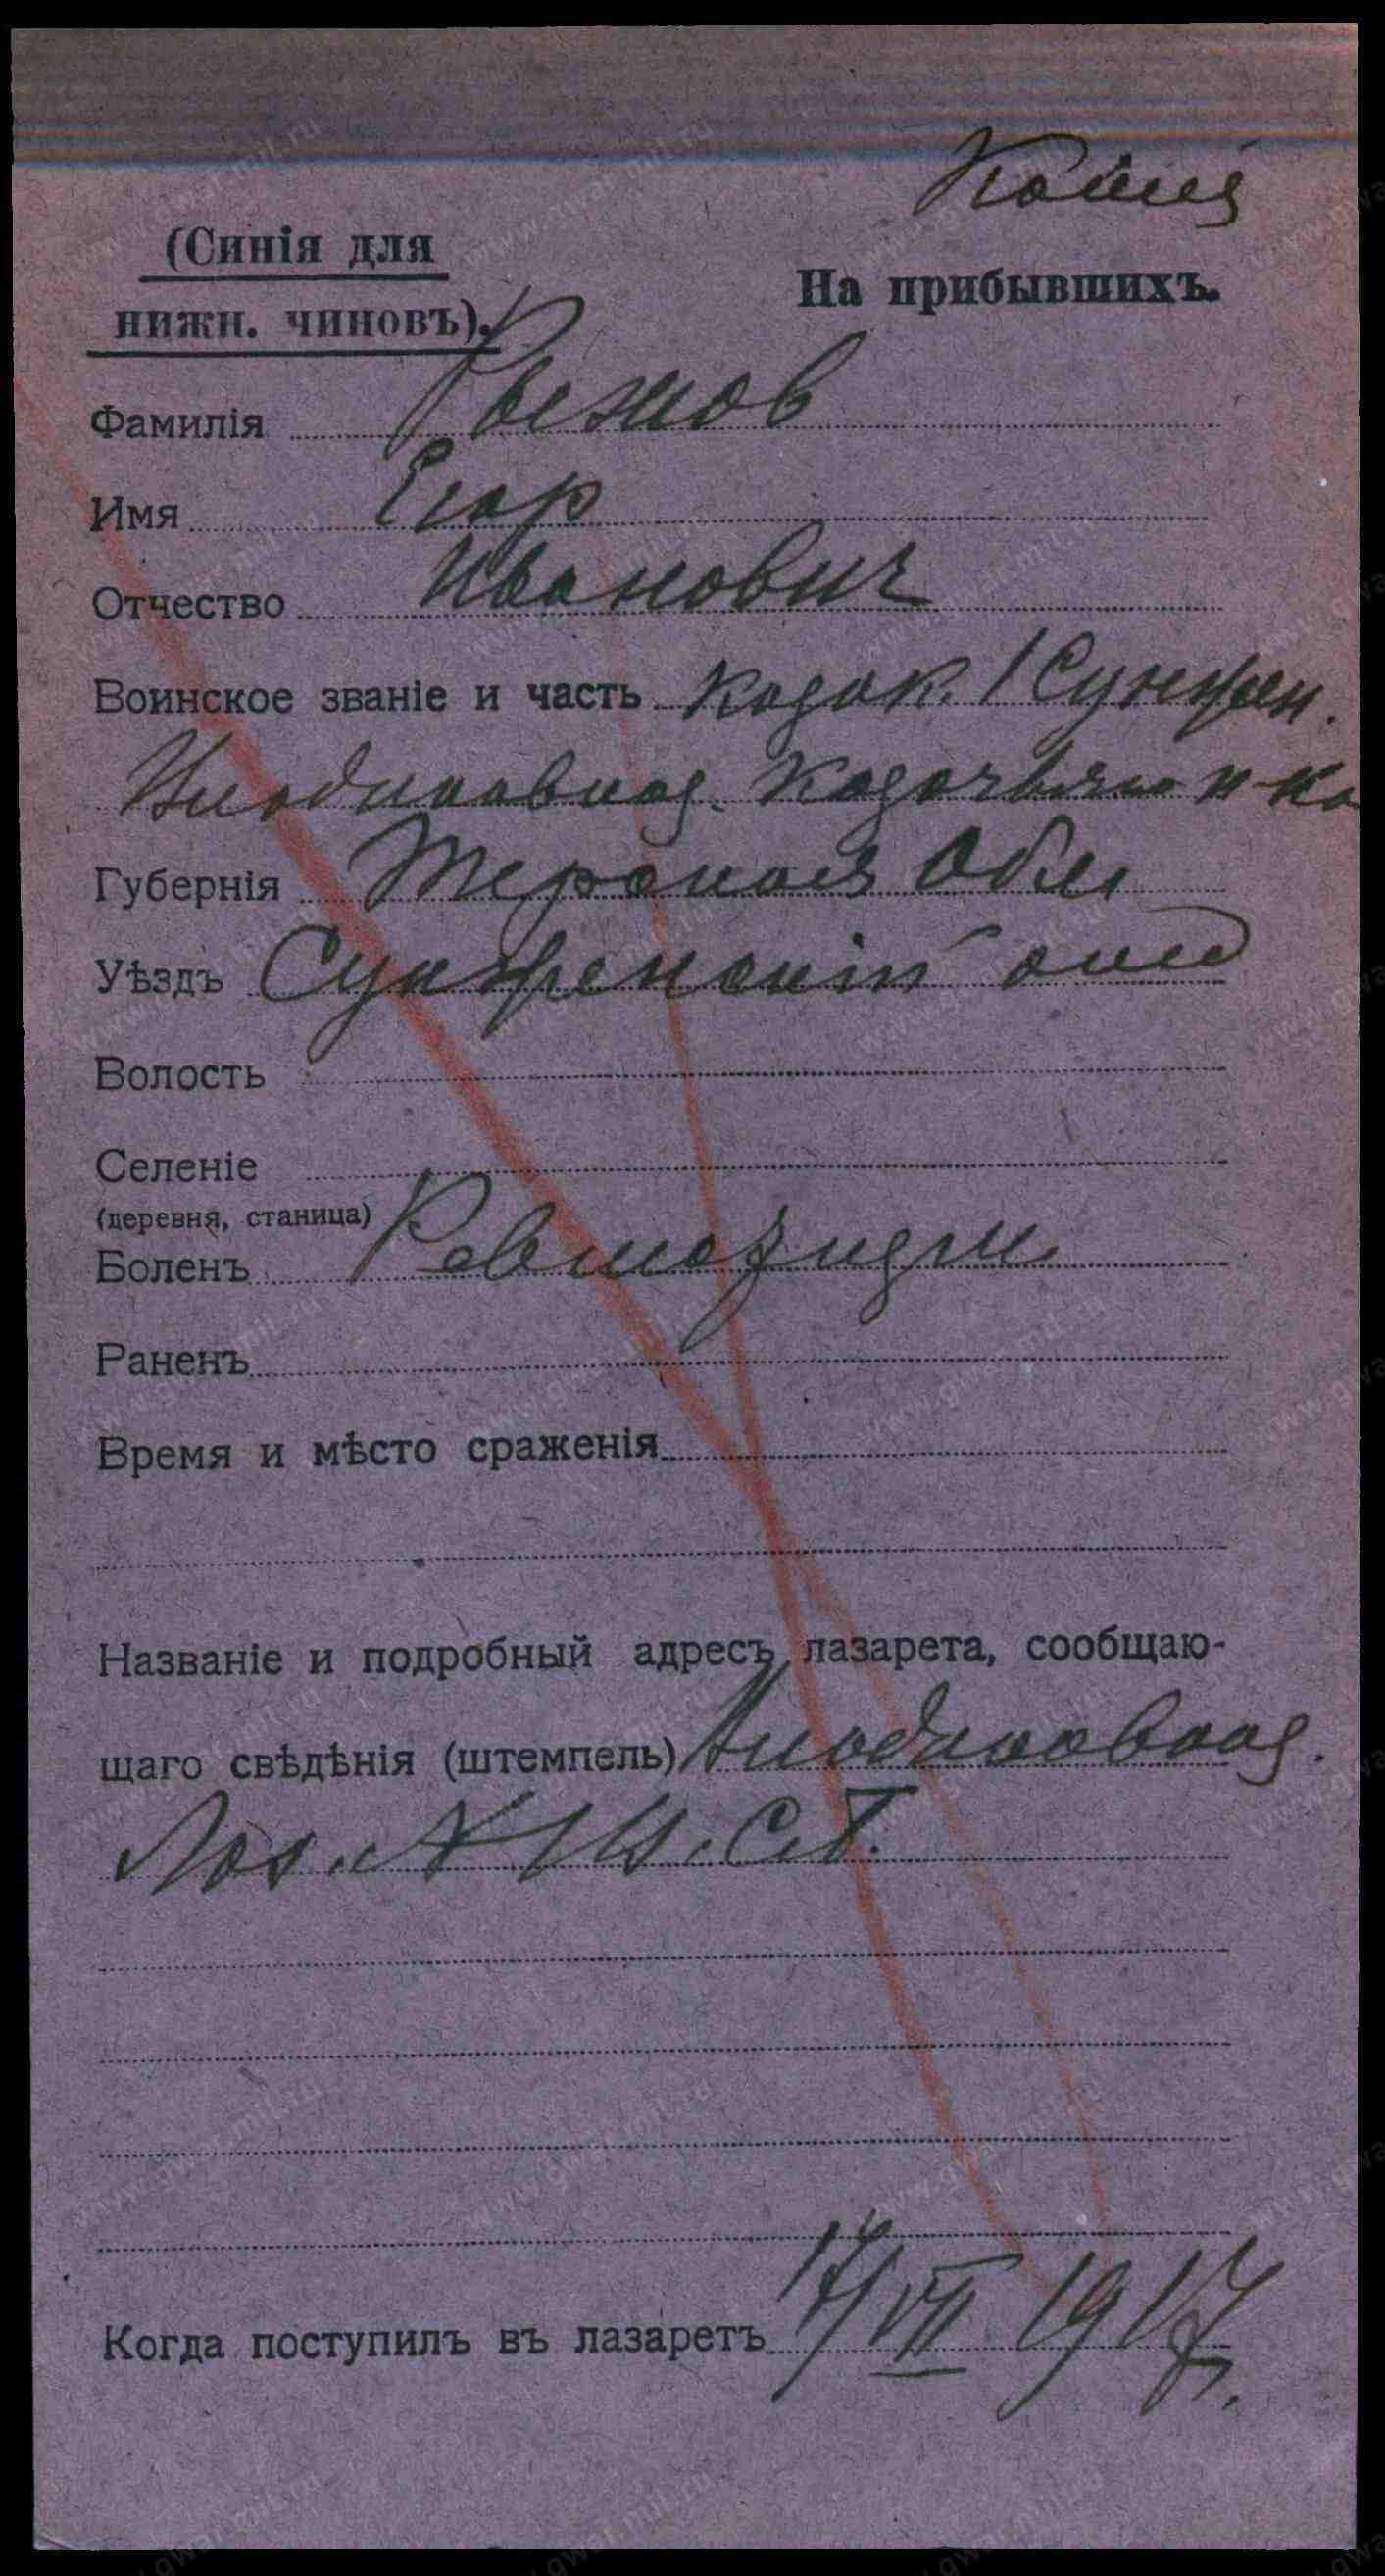 Копія
(Синія для
На прибывшихъ.
нижн. чиновъ).
Фамилія Рыжов
Имя Егор
Отчество Иванович
Воинское званіе и часть Казак. 1 Сунжен.
Владикавказ. Казачьяго п-ка
Губернія Терская Обл.
Уѣздъ Сунженскій отд
Волость
Селеніе
(деревня, станица)
Боленъ
Раненъ
Время и мѣсто сраженія
Названіе и подробный адресъ лазарета, сообщаю-
щаго свѣдѣнія (штемпель) Владикавказ.
Лаз. С.
Когда поступилъ въ лазаретъ VII 1917